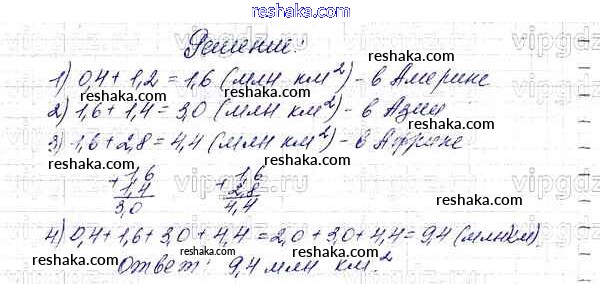 reshaka.com
Решение:
reshaka.com
1) 0,4 + 1,2 = 1,6 (млн км²) - в Америке
reshaka.com
2) 1,6 + 1,4 = 3,0 (млн км²) - в Азии
reshaka.com
3) 1,6 + 2,8 = 4,4 (млн км²) - в Африке
reshaka.com reshaka.com
+ 1,6 + 1,6
1,4 2,8
reshaka.com reshaka.com
3,0 4,4
reshaka.com
4) 0,4 + 1,6 + 3,0 + 4,4 = 2,0 + 3,0 + 4,4 = 9,4 (млн км).
reshaka.com reshaka.com
Ответ: 9,4 млн км.²
reshaka.com